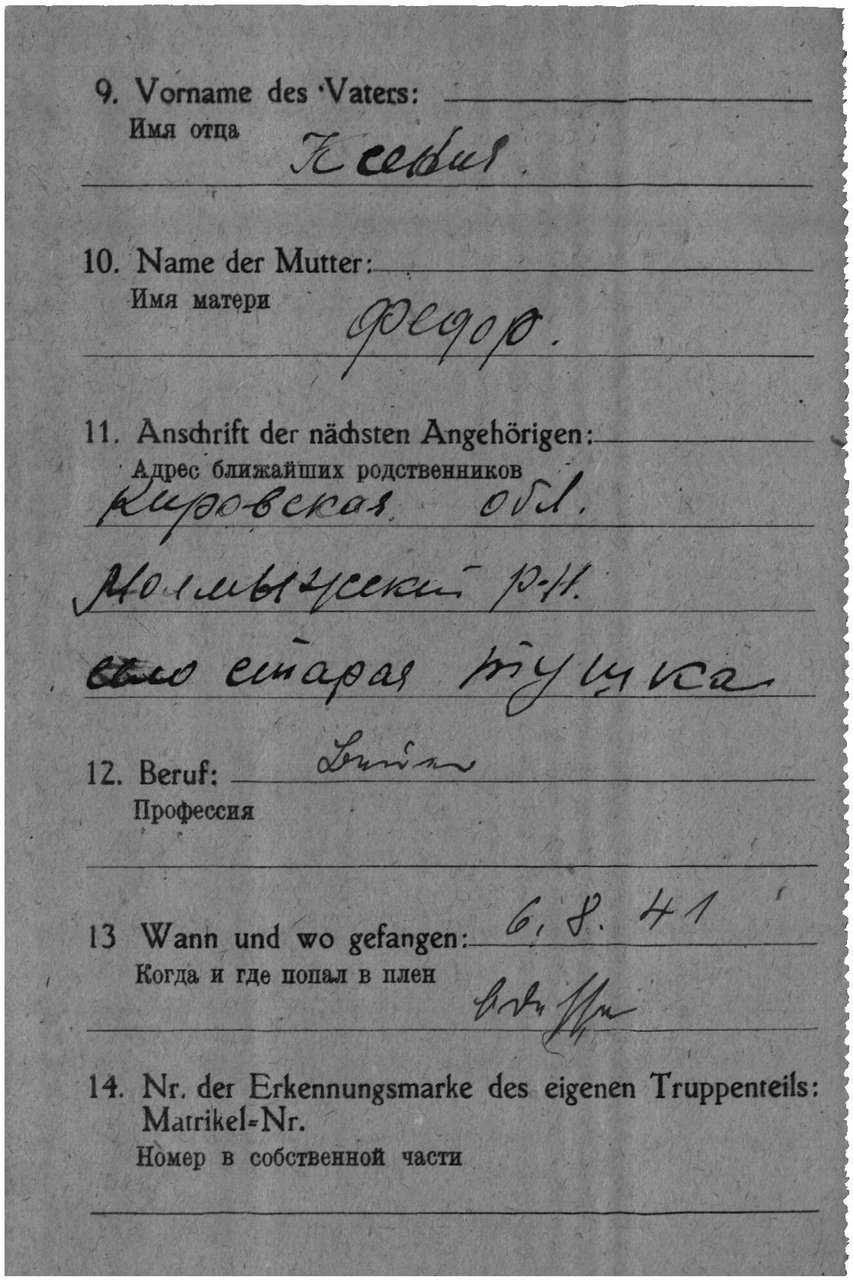 9. Vorname des Vaters:
Имя отца
Ксения.
10. Name der Mutter:
Имя матери
Федор.
11. Anschrift der nächsten Angehörigen:
Адрес ближайших родственников
Кировская обл.
Молмыжский р-н.
село старая тушка
12. Beruf:
Профессия
13 Wann und wo gefangen: 6, 8. 41
Когда и где попал в плен
14. Nr. der Erkennungsmarke des eigenen Truppenteils:
Matrikel-Nr.
Номер в собственной части